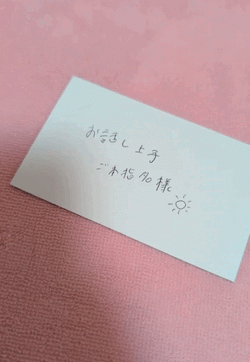 お話し上手
ご本指名様